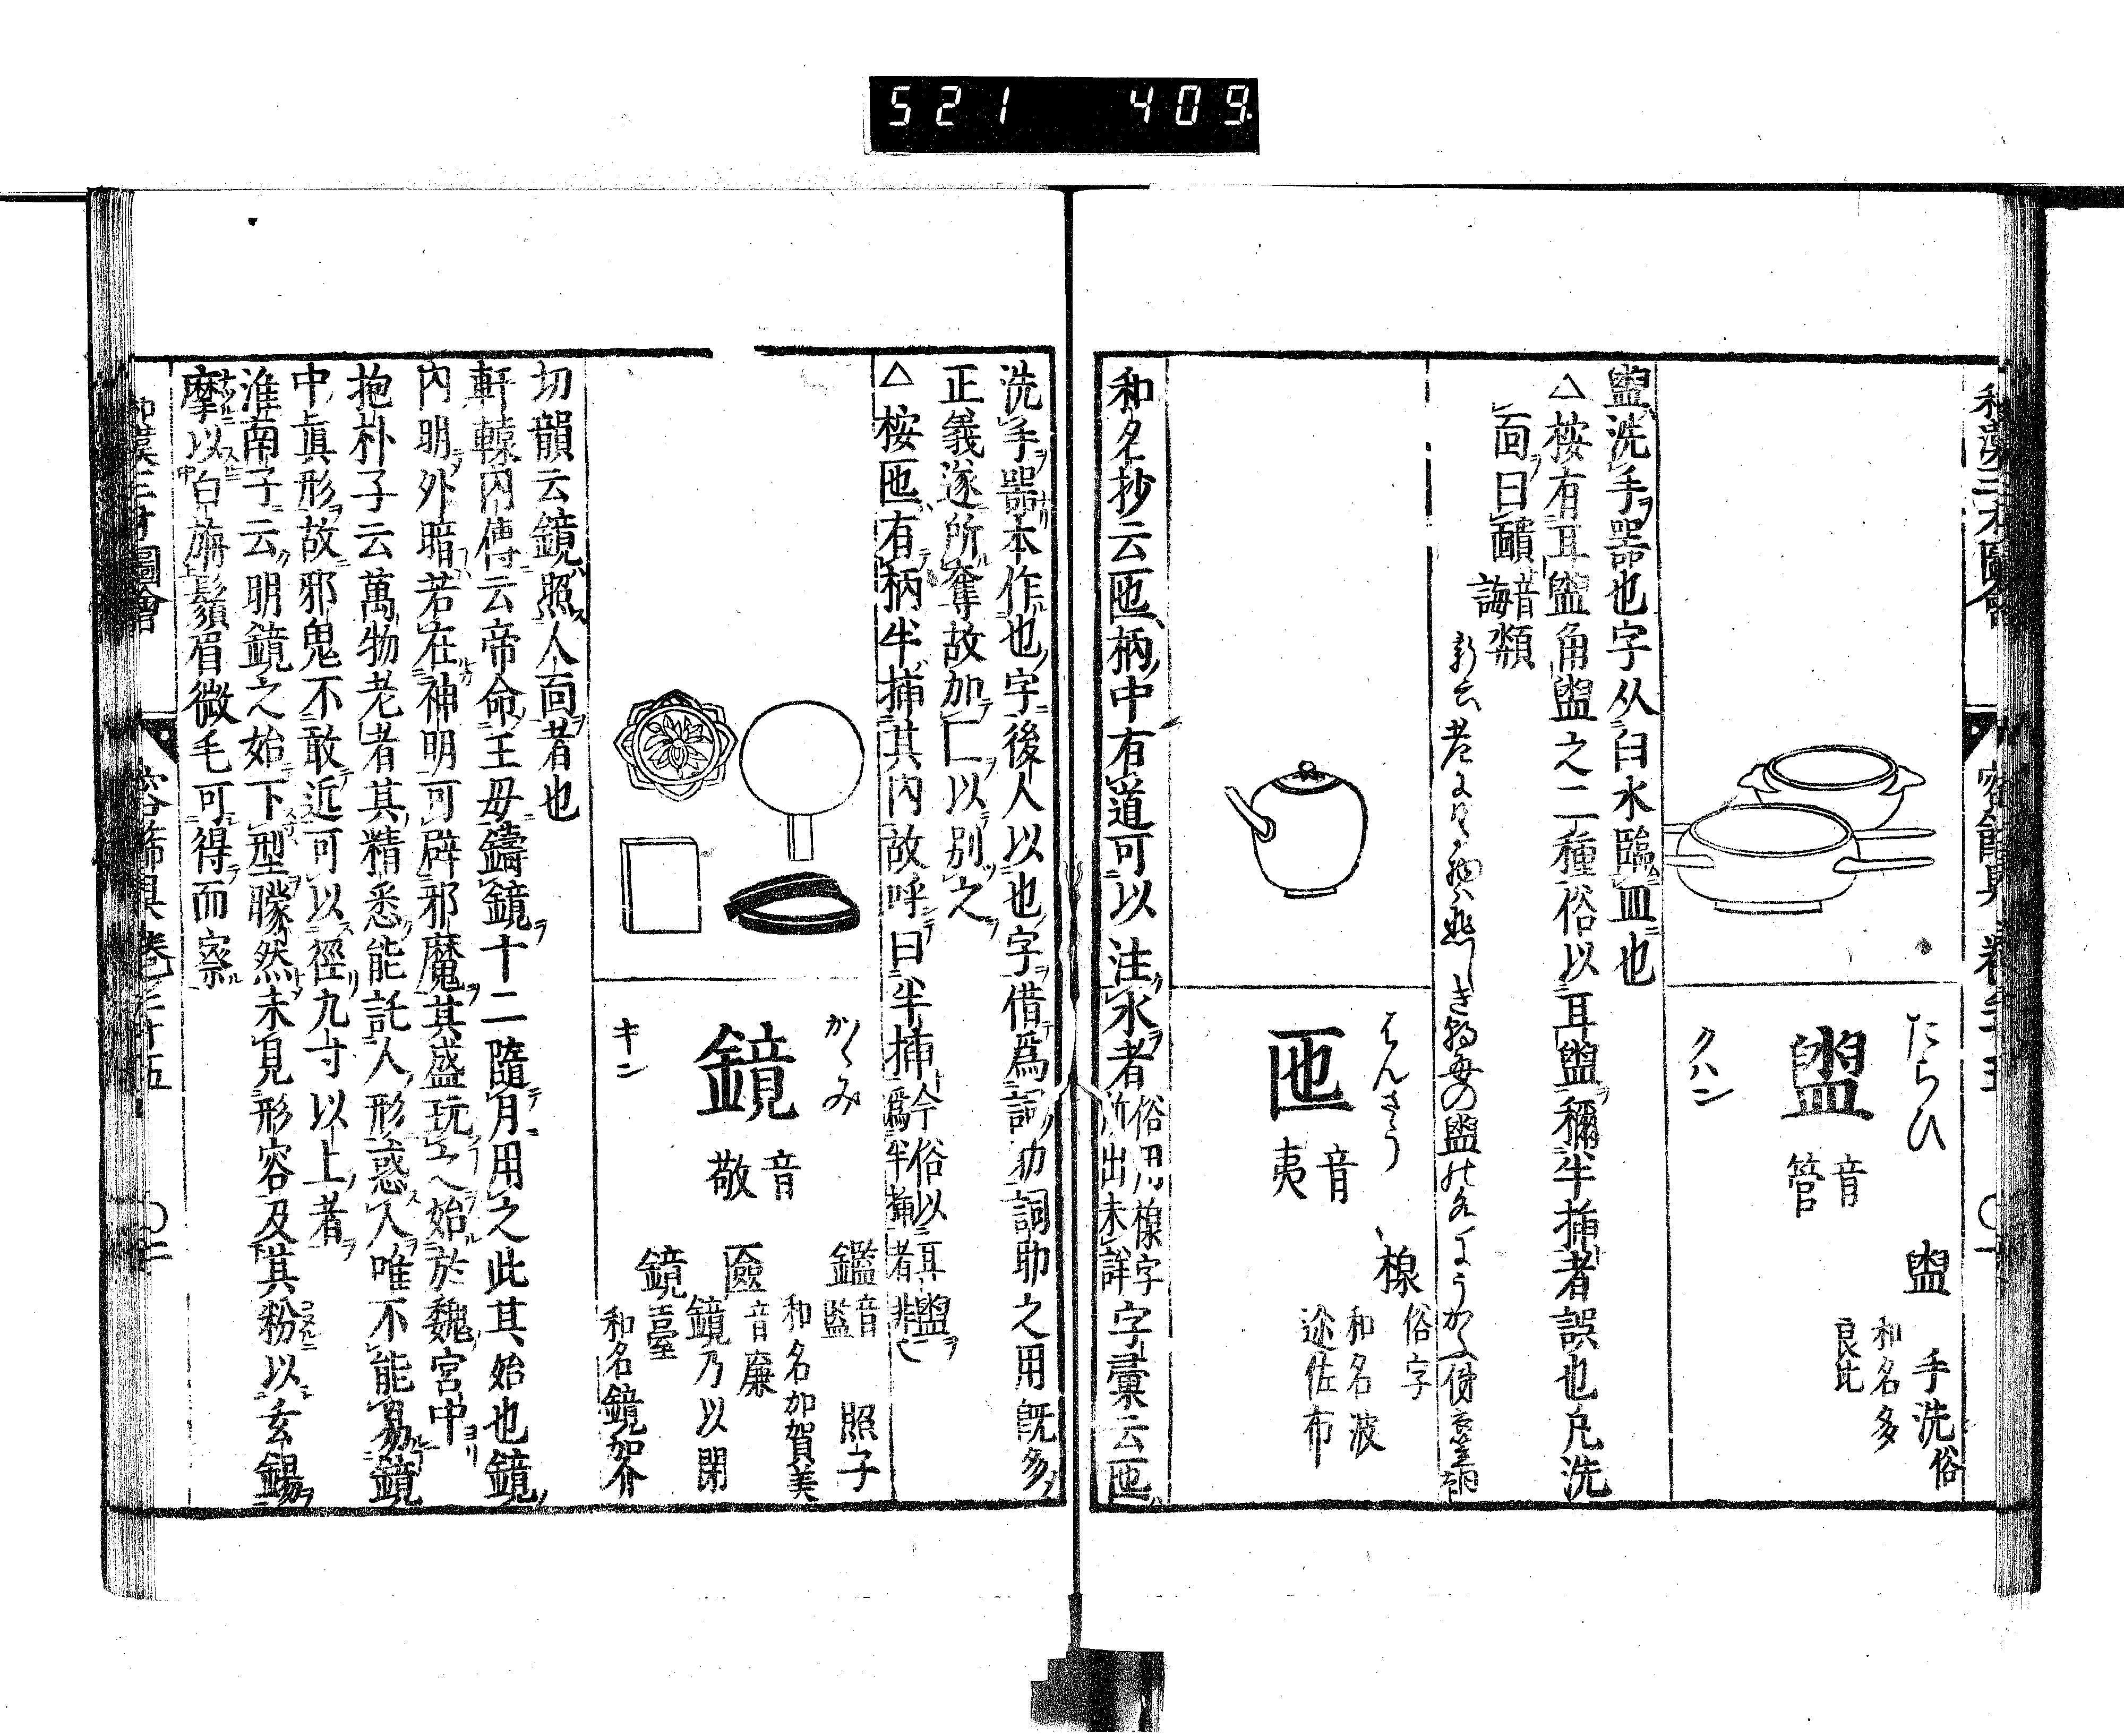 521 409.
たらひ
盥 音管
クハン
盥 手洗俗
和名多
良比
盥洗手器也字从臼水臨皿也
△按有耳盥角盥之二種俗以耳盥稱半挿者誤也凡洗
面曰靧音誨類
はんざう
匜 音夷
椽 俗字
和名波
迩佐布
和名抄云匜柄中有道可以注水者俗用椽字所出未詳字彙云匜
洗手器本作也字後人以也字借爲詞助詞助之用既多
正義遂所奪故加匚以別之
△按匜有柄半挿其内故呼曰半挿今俗以耳盥爲半挿者非也
かゝみ
鏡 音敬
キン
鑑 音監 照子
和名加賀美
匳 音廉
鏡乃以閉
鏡臺
和名鏡加介
切韻云鏡照人面者也
軒轅内傳云帝命王母鑄鏡十二隨月用之此其始也鏡
内明外暗若在神明可辟邪魔其盛玩之始於魏宮中
抱朴子云萬物老者其精悉能託人形惑人唯不能易鏡
中眞形故邪鬼不敢近可以徑九寸以上者
淮南子云明鏡之始下型矇然未見形容及其粉以玄錫
摩以白旃鬚眉微毛可得而察
和漢三才圖會 容飾具 卷二十五 〇二